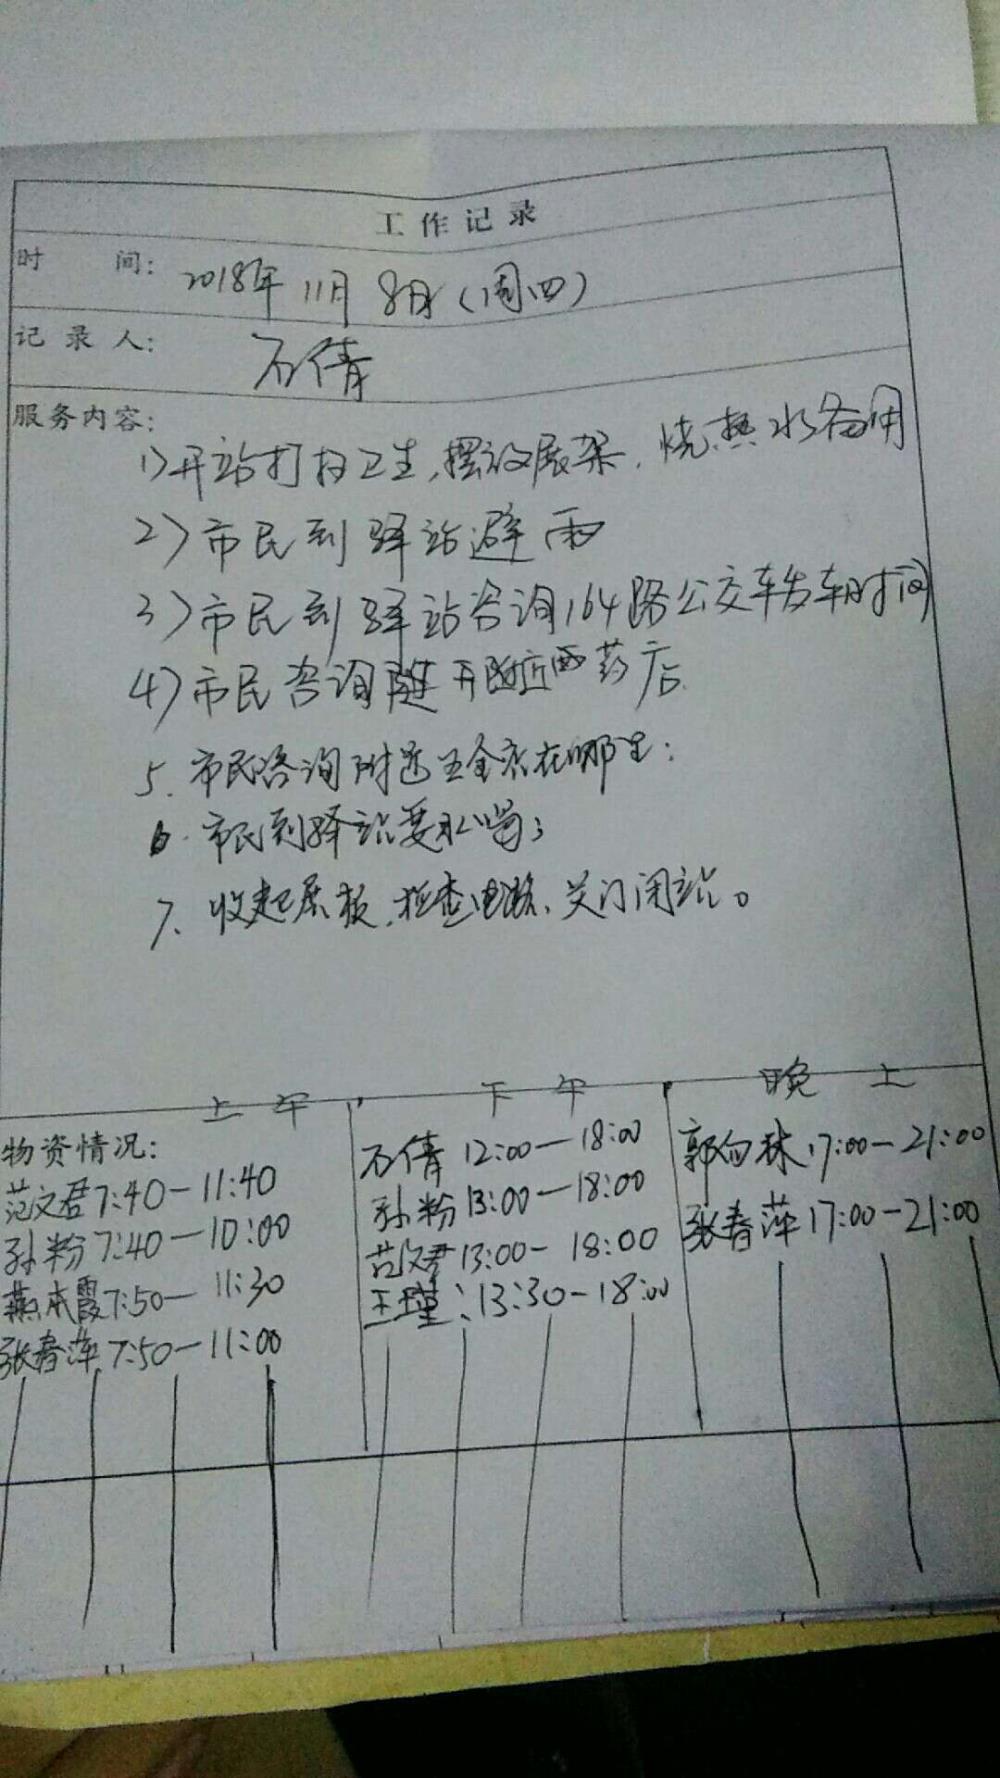 工作记录
时 间: 2018年 11月 8日 (周四)
记录人: 石倩
服务内容:
1)开站打扫卫生,摆设展架,烧热水备用
2)市民到驿站避雨
3)市民到驿站咨询164路公交车发车时间
4)市民咨询附近西药店
5.市民咨询附近五金店在哪里;
6.市民到驿站要水喝;
7.收起展板,检查电路、关门闭站。
上午 下午 晚上
物资情况:
范文君7:40—11:40
孙粉7:40—10:00
燕木霞7:50—11:30
张春萍7:50—11:00
石倩12:00—18:00
孙粉13:00—18:00
范文君13:00—18:00
王瑾:13:30—18:00
郭向林17:00—21:00
张春萍17:00—21:00